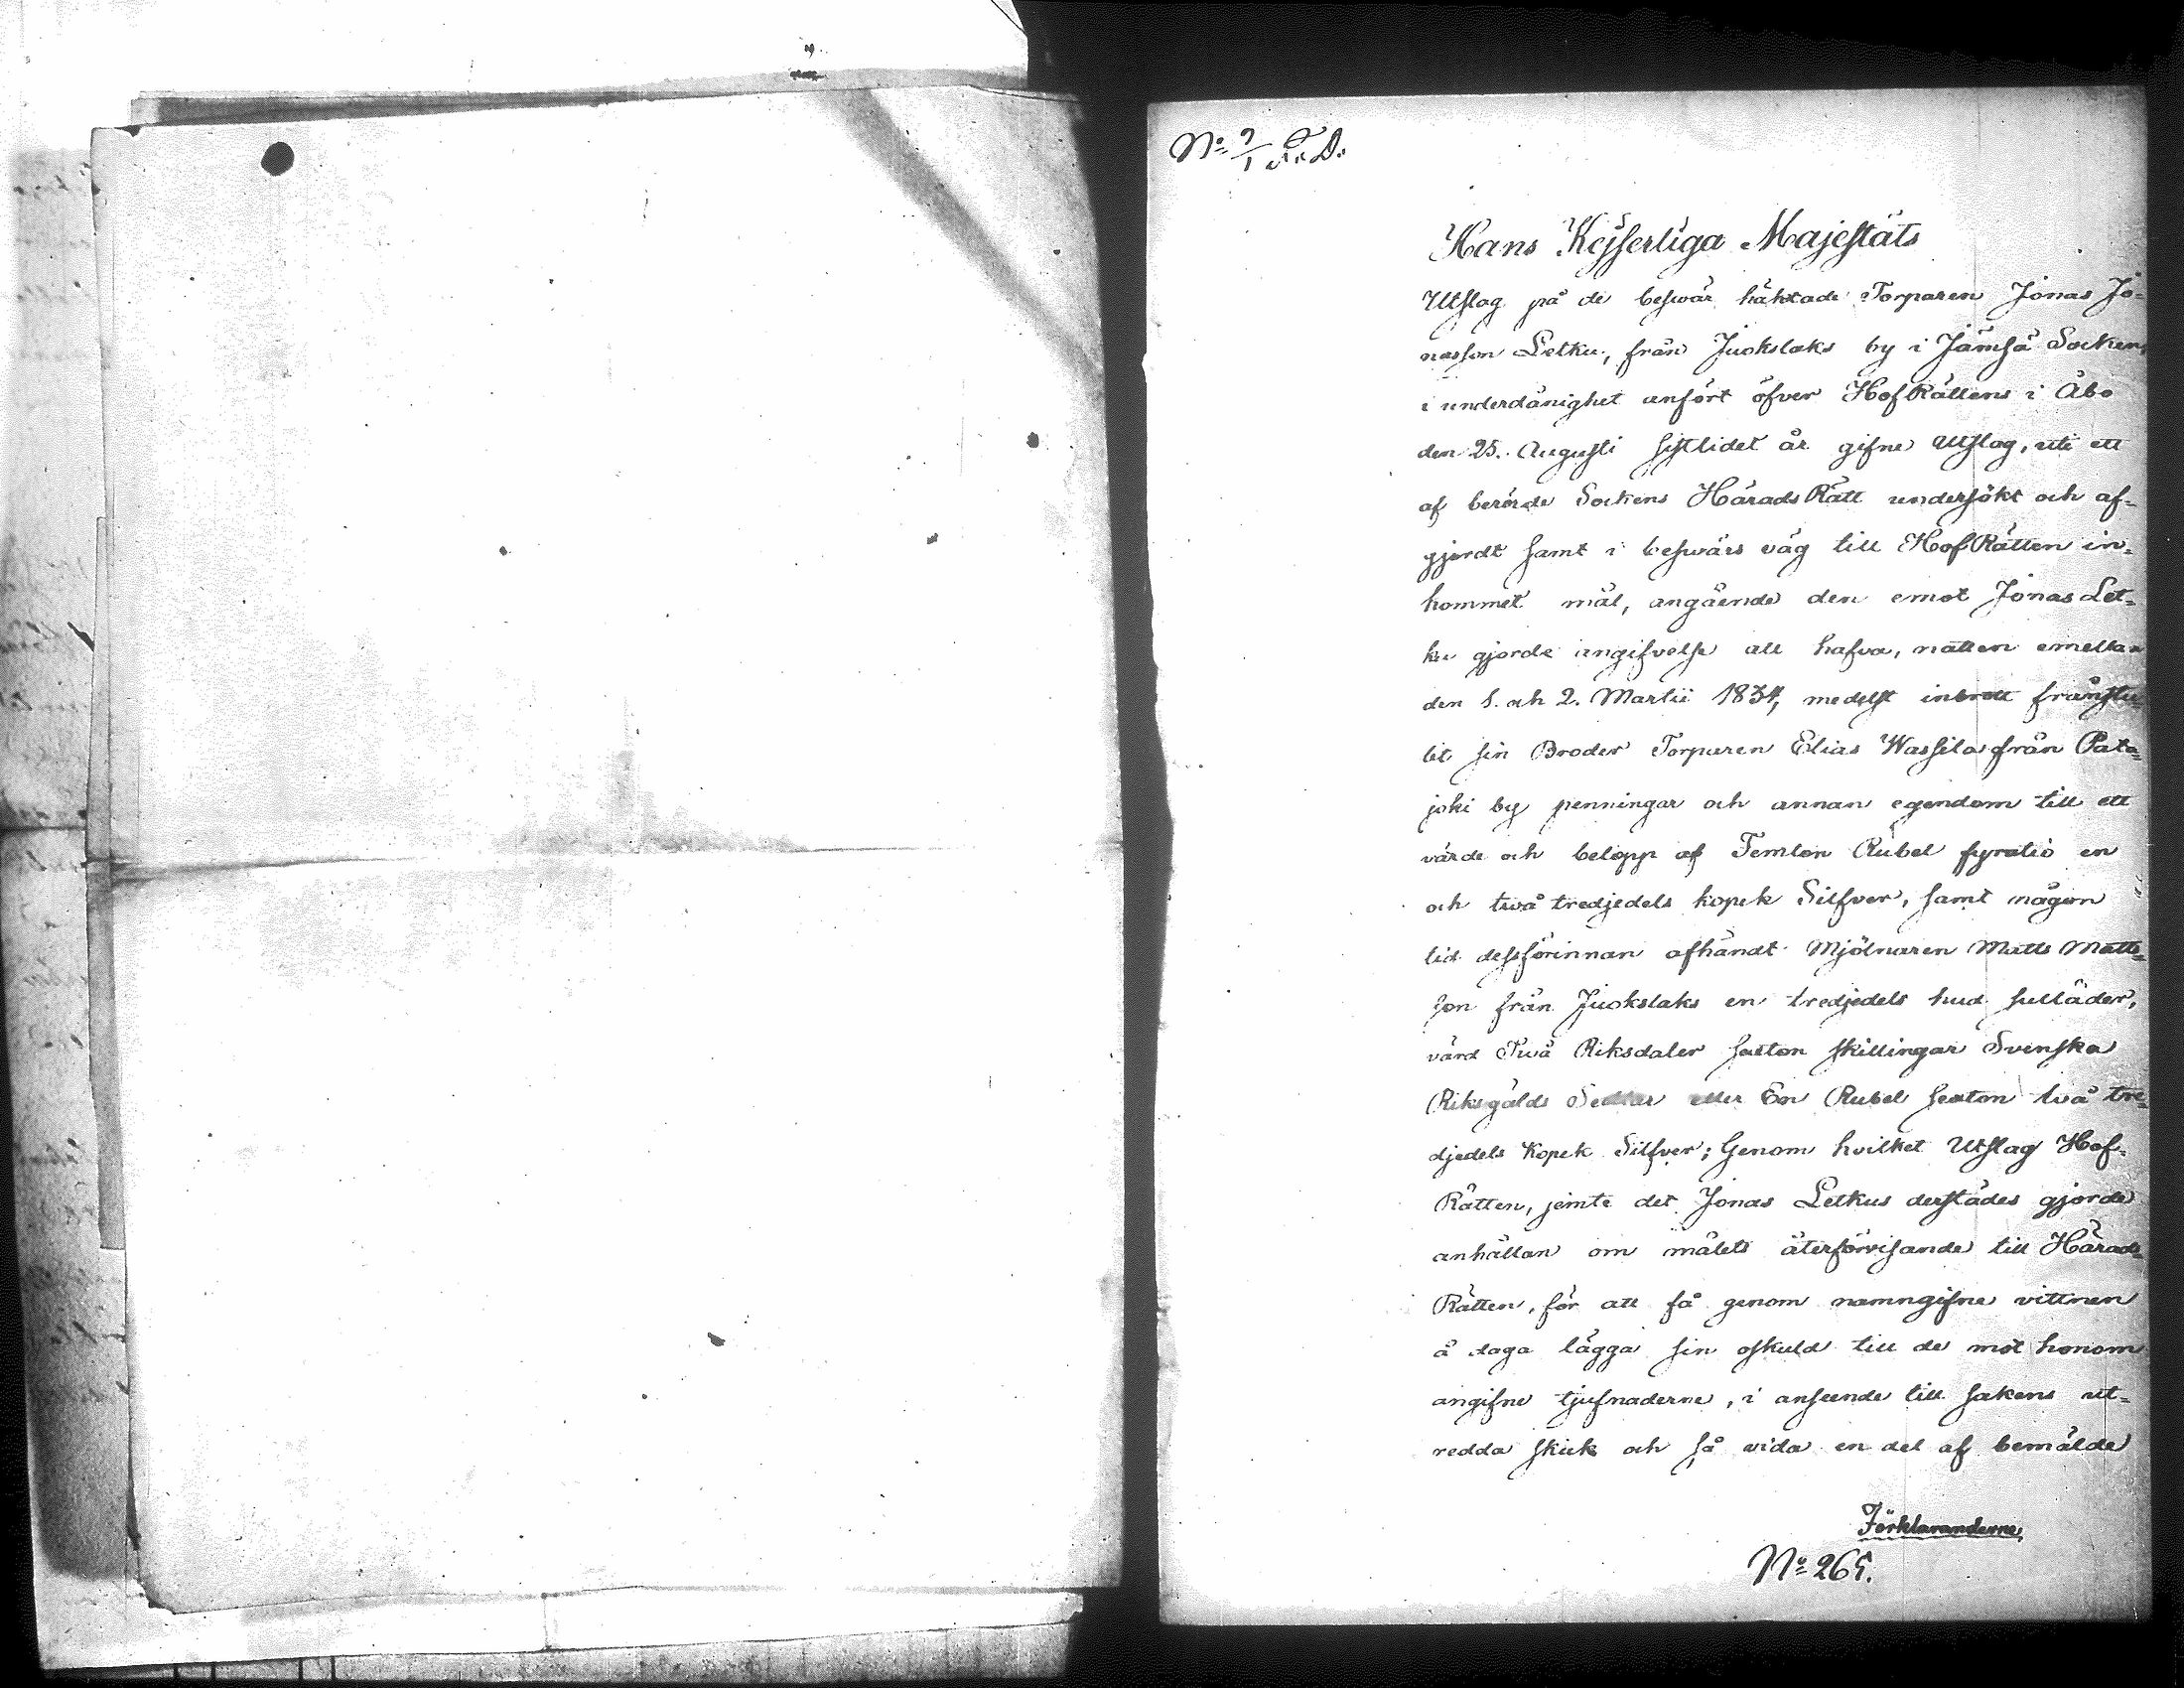 Hans Kejserliga Majestäts
Utslag på de beswär häktade Torparen Jonas Jo-
nasson Letku, från Juokslaks by i Jämsä Socken,
i underdånighet anfört öfver HofRättens i Åbo
den 25. Augusti sistlidet år gifne Utslag, uti ett
af berörde Sockens HäradsRätt undersökt och af-
gjordt samt i beswärs väg till HofRätten in-
kommet mål, angående den emot Jonas Let-
ku gjorde angifvelse att hafva, natten emellan
den 1. och 2. Martii 1834, medelst inbrott frånstu-
lit sin Broder Torparen Elias Wassila från Pata-
joki by penningar och annan egendom till ett
värde och belopp af Femton Rubel fyratio en
och två tredjedels kopek Silfver, samt någon
tid dessförinnan afhändt Mjölnaren Matts Matts-
son från Juokslaks en tredjedels hud sulläder,
värd Två Riksdaler sexton skillingar Svenska
Riksgälds Sedlar eller En Rubel sexton två tre-
djedels Kopek Silfver; Genom hvilket Utslag Hof-
Rätten, jemte det Jonas Letkus derstädes gjorde
anhållan om målets återförvisande till Härads-
Rätten, för att få genom namngifne vittnen
å daga lägga sin oskuld till de mot honom
angifne tjufnaderne, i anseende till sakens ut-
redda skick och så vida en del af bemälde
Förklaranderne
No 265.